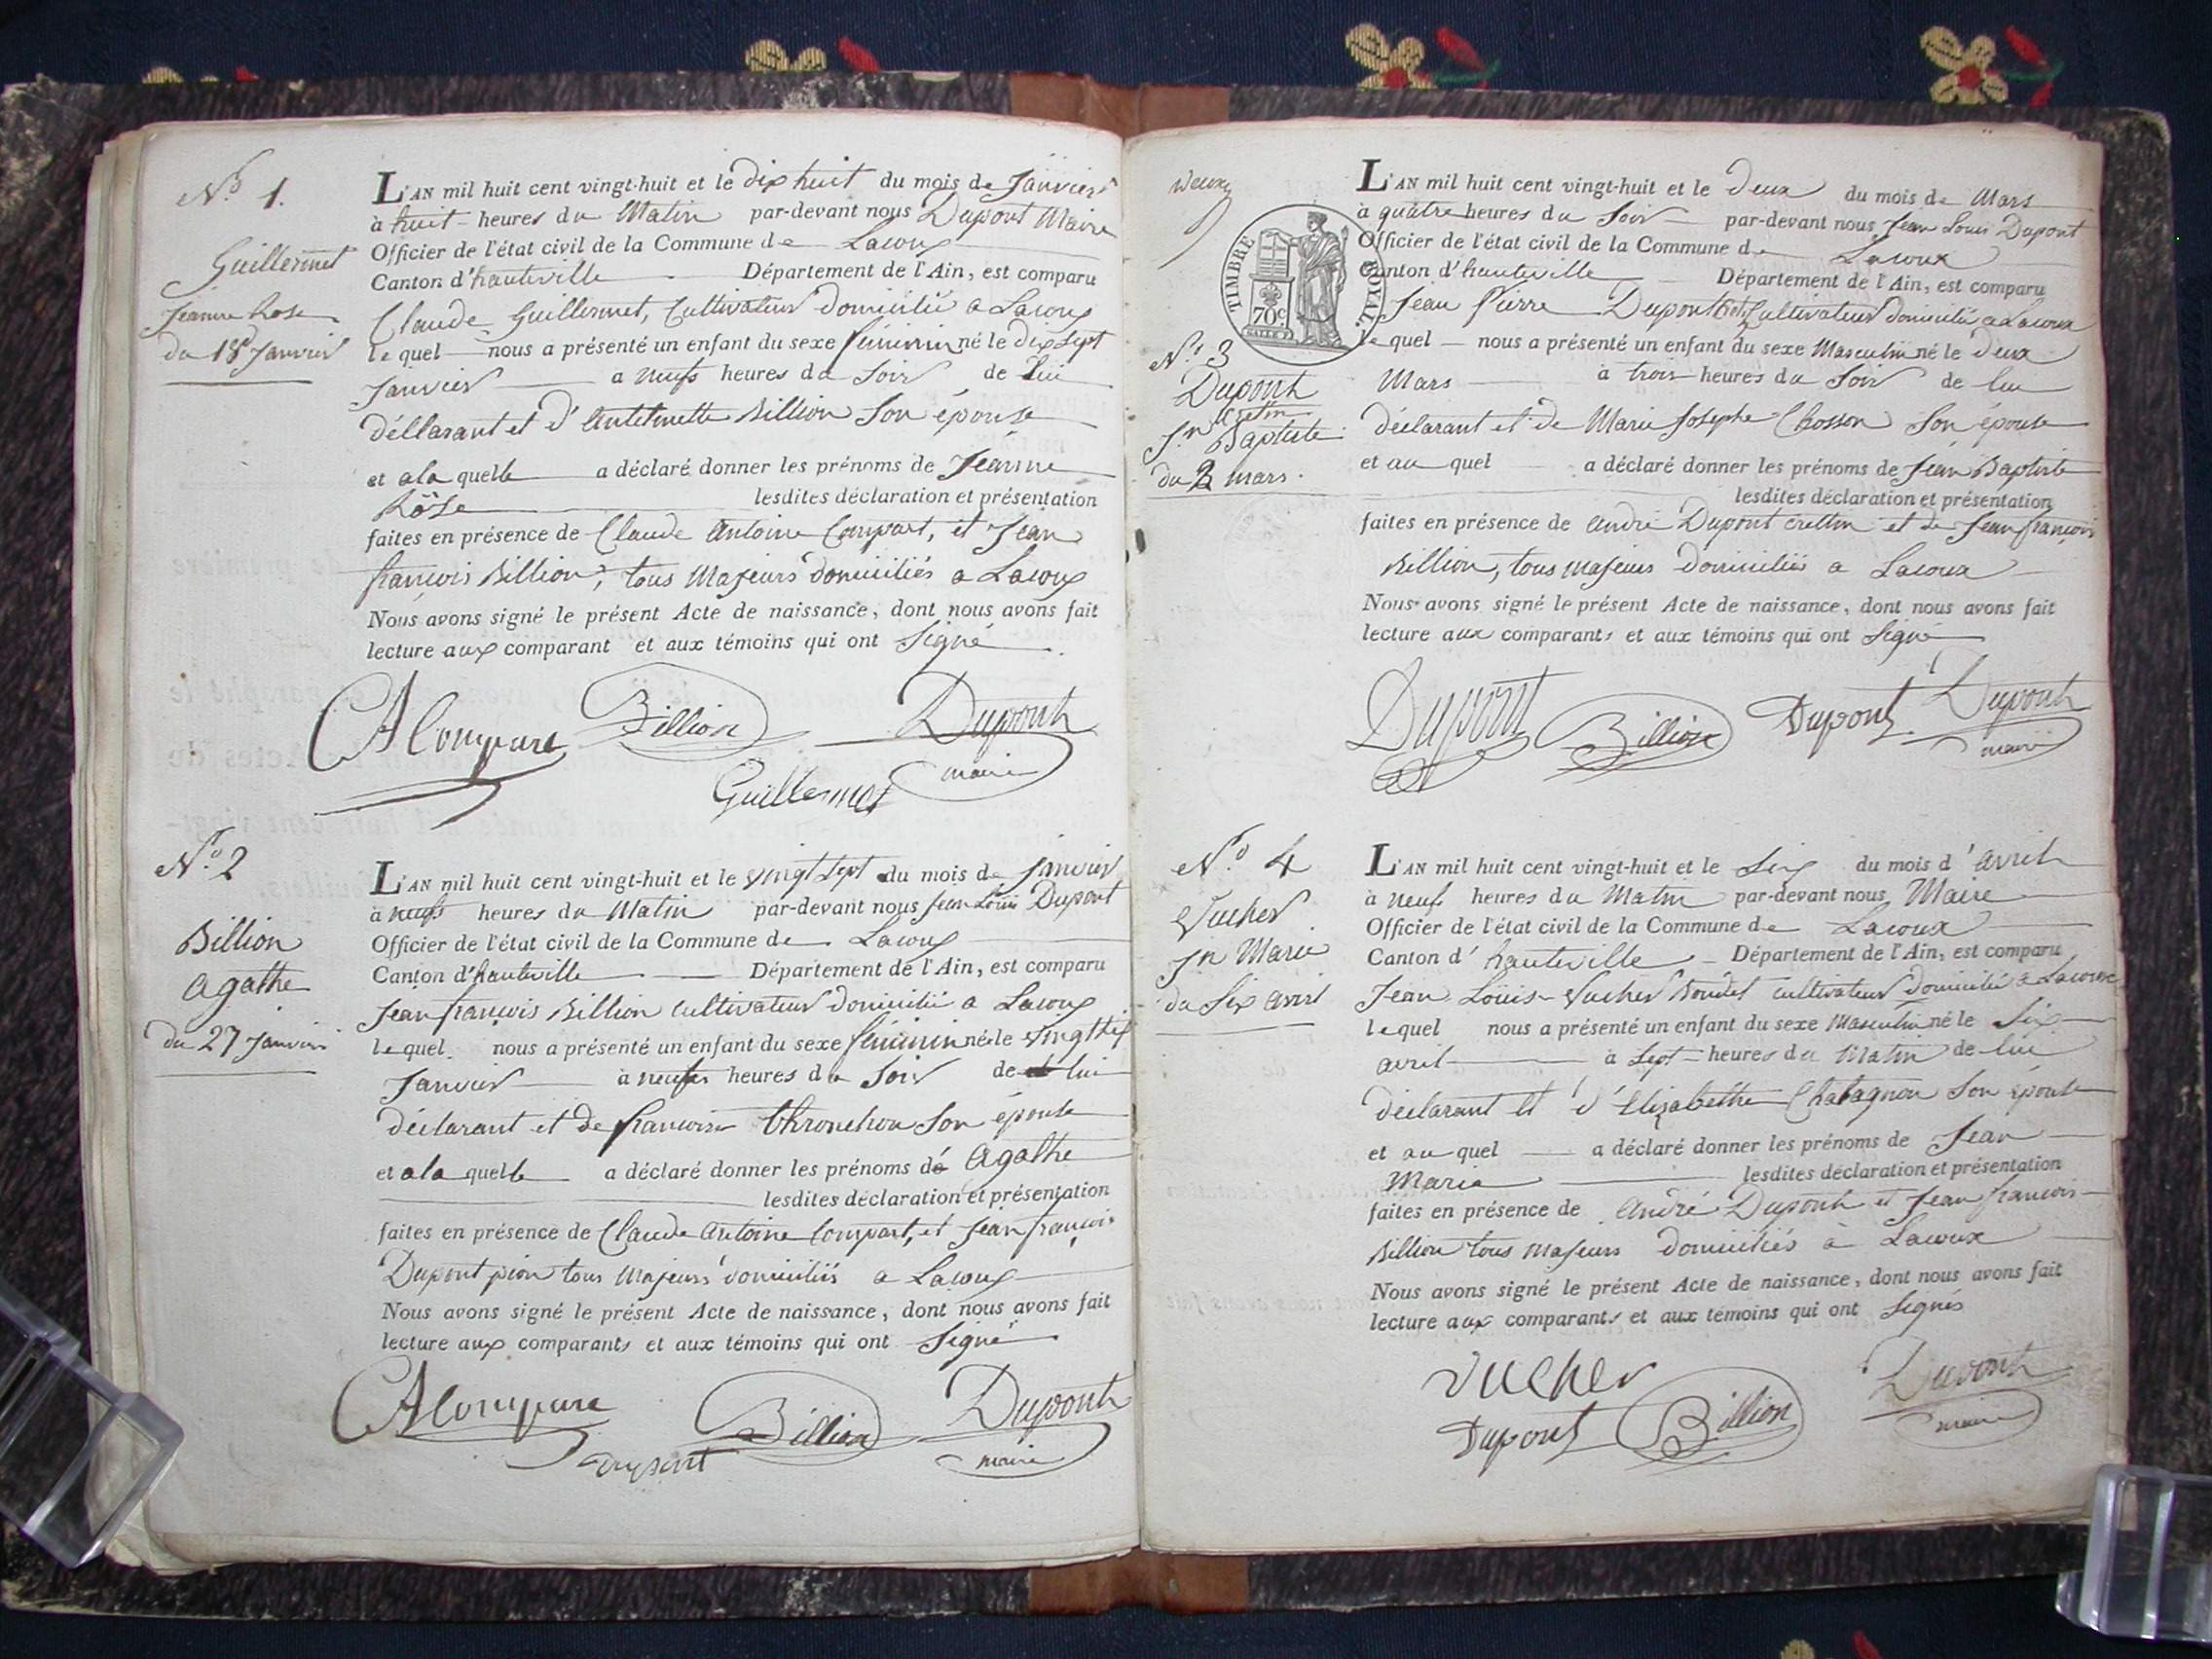 N.o 1.
Guillermet
Jeanne Rose
du 18 Janvier
L'AN mil huit cent vingt-huit et le dix huit du mois de Janvier
à huit heures du Matin par-devant nous Dupont Maire
Officier de l'état civil de la Commune de Lacoux
Canton d'hauteville Département de l'Ain, est comparu
Claude Guillermet, Cultivateur domicilié a Lacoux
lequel nous a présenté un enfant du sexe féminin né le dix Sept
Janvier a neufs heures du Soir de lui
déllarant et d'Antetmette Billion Son épouse
et ala quelle a déclaré donner les prénoms de Jeanne
Rose lesdites déclaration et présentation
faites en présence de Claude Antoine Compart, et Jean
françois Billion, tous Majeurs domiciliés a Lacoux
Nous avons signé le présent Acte de naissance, dont nous avons fait
lecture aux comparant et aux témoins qui ont Signé
CA Compare Billion Dupont
maire
Guillermet
N.o 2
Billion
agathe
du 27 Janvier
L'AN mil huit cent vingt-huit et le vingt Sept du mois de Janvier
à neufs heures du Matin par-devant nous Jean Louis Dupont
Officier de l'état civil de la Commune de Lacoux
Canton d'hauteville Département de l'Ain, est comparu
Jean françois Billion cultivateur domicilié a Lacoux
lequel nous a présenté un enfant du sexe féminin né le vingt six
Janvier à neufs heures du Soir de lui
déclarant et de françoise thronchon Son épouse
et ala quelle a déclaré donner les prénoms de Agathe
lesdites déclaration et présentation
faites en présence de Claude Antoine Compart, et Jean françois
Dupont pion tous Majeurs domiciliés a Lacoux
Nous avons signé le présent Acte de naissance, dont nous avons fait
lecture aux comparants et aux témoins qui ont Signé
CA Compare Billion Dupont
dupont maire
deux
TIMBRE ROYAL.
70c
N.o 3
Dupont
Cretin
J.n Baptiste
du 2 mars.
L'AN mil huit cent vingt-huit et le deux du mois de Mars
à quatre heures du Soir par-devant nous Jean Louis Dupont
Officier de l'état civil de la Commune de Lacoux
Canton d'hauteville Département de l'Ain, est comparu
Jean Pierre Dupont Cultivateur domicilié a Lacoux
lequel nous a présenté un enfant du sexe Masculin né le deux
Mars à trois heures du Soir de lui
déclarant et de Marie Josephe Chosson Son épouse
et au quel a déclaré donner les prénoms de Jean Baptiste
lesdites déclaration et présentation
faites en présence de andré Dupont crettin et de Jean françois
Billion, tous majeurs domiciliés a Lacoux
Nous avons signé le présent Acte de naissance, dont nous avons fait
lecture aux comparants et aux témoins qui ont Signé
Dupont Billion Dupont Dupont
maire
N.o 4
Vucher
J.n Marie
du Six avril
L'AN mil huit cent vingt-huit et le Six du mois d'avril
à neufs heures du Matin par-devant nous Maire
Officier de l'état civil de la Commune de Lacoux
Canton d'hauteville Département de l'Ain, est comparu
Jean Louis Vucher Boudet cultivateur domicilié a Lacoux
lequel nous a présenté un enfant du sexe Masculin né le Six
avril à Sept heures du Matin de lui
déclarant et d'Elizabethe Chatagnon Son épouse
et au quel a déclaré donner les prénoms de Jean
Marie lesdites déclaration et présentation
faites en présence de André Dupont et Jean françois
Billion tous majeurs domiciliés à Lacoux
Nous avons signé le présent Acte de naissance, dont nous avons fait
lecture aux comparants et aux témoins qui ont Signés
vucher Dupont
Dupont Billion maire